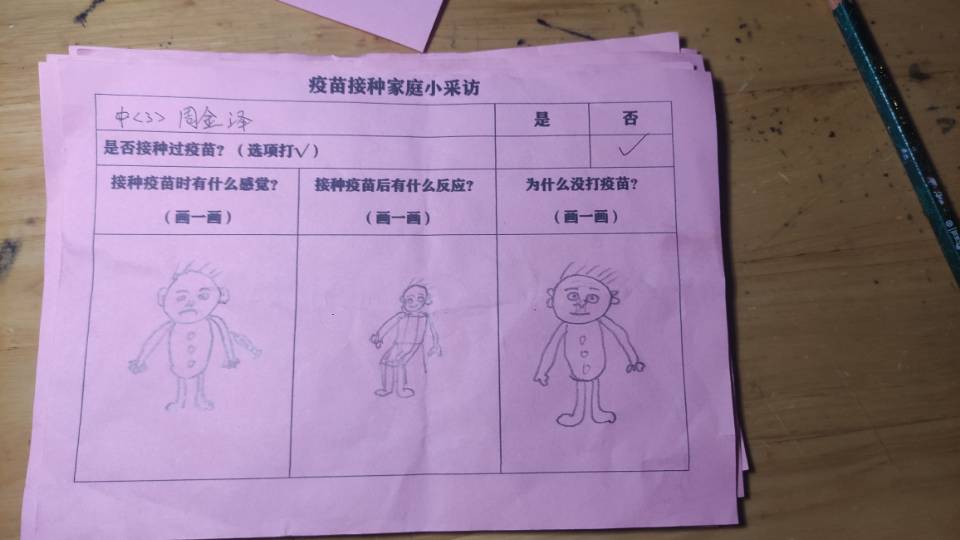 疫苗接种家庭小采访
中<3> 周金泽 是 否
是否接种过疫苗？（选项打√） ✓
接种疫苗时有什么感觉？ 接种疫苗后有什么反应？ 为什么没打疫苗？
（画一画） （画一画） （画一画）